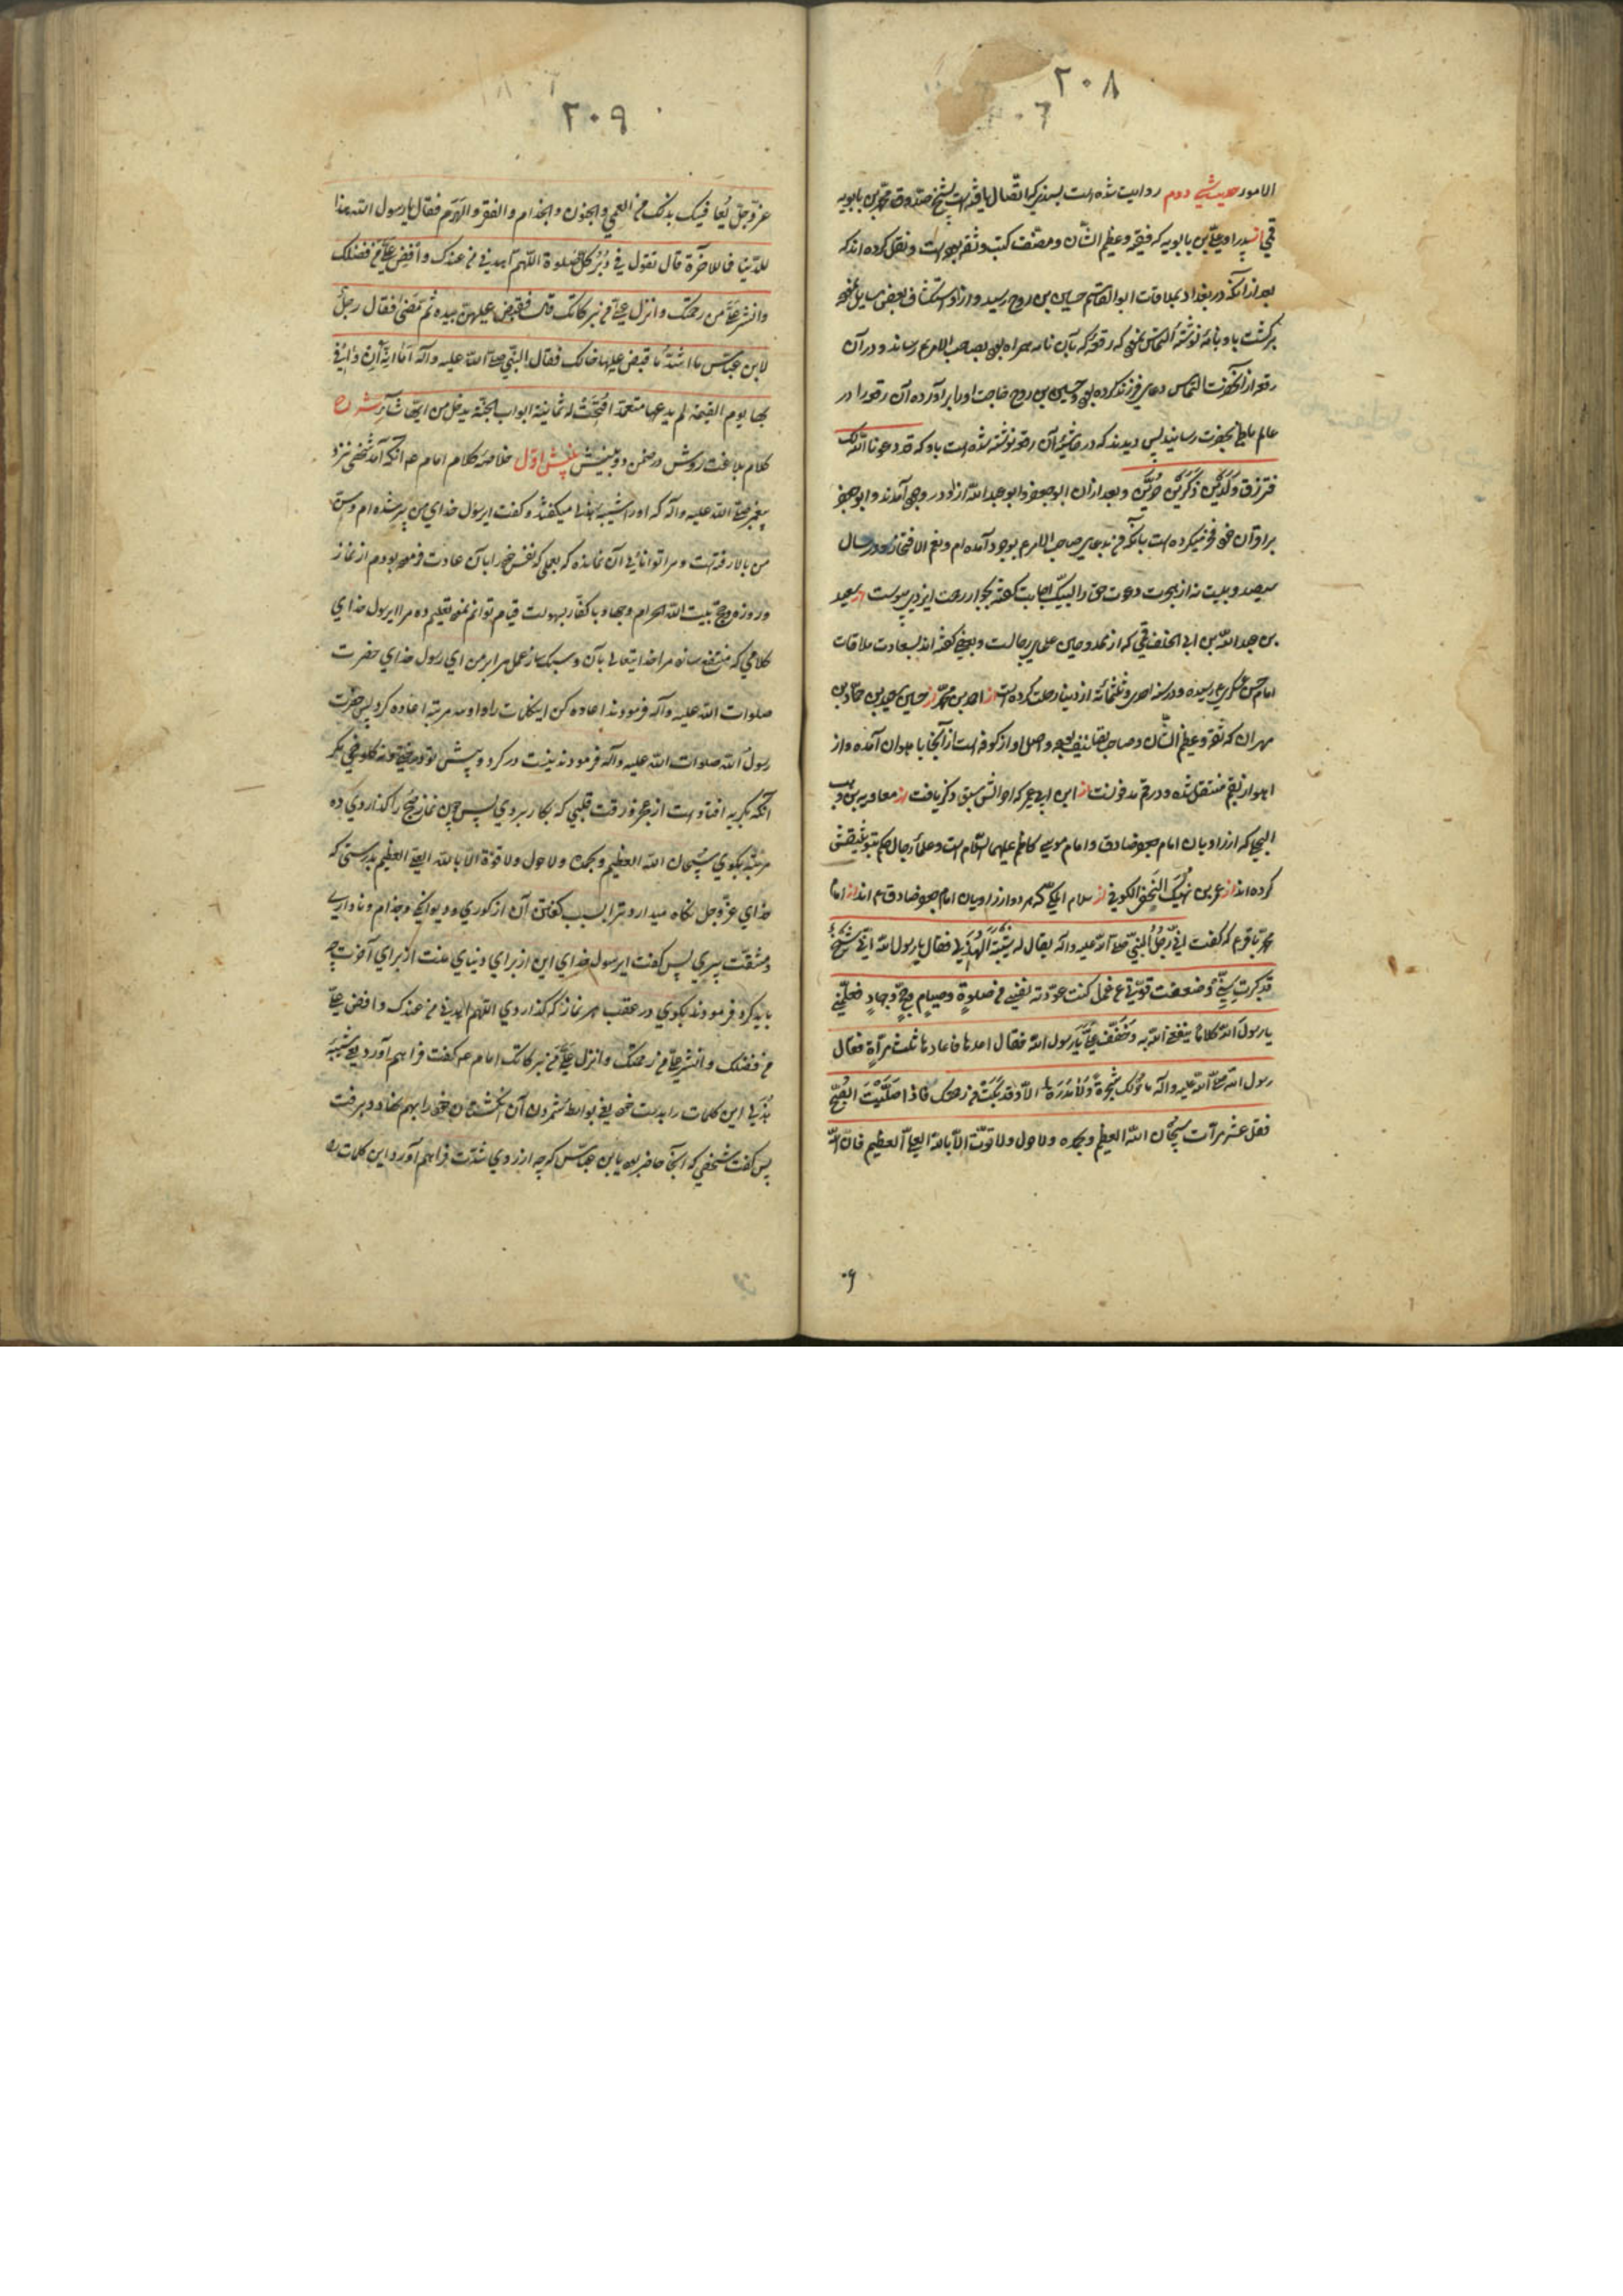 ٢٠٨
الامور حدیث دوم روایت شده است بسندیکه اتّصال یافته است بشیخ صدوق محمّد بن بابویه
قمی از پدر او علیّ بن بابویه که فقیه و عظیم الشّان و مصنّف کتب و ثقه بوده است و نقل کرده اند که
بعد از آنکه در بغداد بملاقات ابو القاسم حسین بن روح رسید و از او استکشاف بعضی مسایل نموده
برگشت باو نامه نوشته التماس نمود که رقعه که بآن نامه همراه بود بصاحب الامر ع رساند و در آن
رقعه از آنحضرت التماس دعای فرزند کرده بود و حسین بن روح حاجت او را برآورده آن رقعه را در
بحضرت رسانید پس دیدند که در حاشیهٔ آن رقعه نوشته شده است باو که قد دعونا اللّه لک
فترزق ولدین ذکرین خیّرین و بعد از آن ابو جعفر و ابو عبد اللّه از او در وجود آمدند و ابو جعفر
بر اقران خود فخر میکرده است بآنکه من بدعای صاحب الامر ع بوجود آمده ام و نعم الافتخار و در سال
سیصد و بیست نه از هجرت دعوت حق را لبیک اجابت گفته بجوار رحمت ایزدی پیوست از سعید
بن عبد اللّه بن ابی الخلف قمی که از ممدوحین علمای رجالست و بعضی گفته اند بسعادت ملاقات
امام حسن عسکری ع رسیده و در سنه احدی و ثلثمائه از دنیا رحلت کرده است از احمد بن محمّد از حسین بن سعید بن حمّاد بن
مهران که ثقه و عظیم الشّان و صاحب تصانیف بوده و اصل او از کوفه است از آنجا باهواز آمده و از
اهواز بقم منتقل شده و در قم مدفونست از ابن ابی عمیر که احوالش سبق ذکر یافت از معاویه بن وهب
البجلی که از راویان امام جعفر صادق و امام موسی کاظم علیهما السّلام است و علمأ رجال حکم بتوثیقش
کرده اند از عمر بن نهیک النخعی الکوفی از سلام المکّی که هر دو از راویان امام جعفر صادق ع اند از امام
محمّد باقر ع که گفت اتی رجل النبیّ صلّی اللّه علیه و آله یقال له شیبة الهذلی فقال یا رسول اللّه انّی شیخ
قد کبرت سنّی و ضعفت قوّتی عن عمل کنت عوّدته نفسی من صلوةٍ و صیامٍ و حجٍّ و جهادٍ فعلّمنی
یا رسول اللّه کلاما ینفعنی اللّه به و خفّف علیّ یا رسول اللّه فقال اعدها فاعادها ثلث مرّات فقال
رسول اللّه صلّی اللّه علیه و آله ما حولک شجرة و لا مدرة الّا و قد بکت من رحمتک فاذا صلّیت الصبح
فقل عشر مرّات سبحان اللّه العظیم و بحمده و لا حول و لا قوّة الّا باللّه العلیّ العظیم فانّ اللّه
٢٠٩
عزّ و جلّ یعافیک بذلک من العمی و الجنون و الجذام و الفقر و الهرم فقال یا رسول اللّه هذا
للدّنیا فما للآخرة قال تقول فی دبر کلّ صلوة اللّهم اهدنی من عندک و افض علیّ من فضلک
و انشر علیّ من رحمتک و انزل علیّ من برکاتک قال فقبض علیهنّ بیده ثمّ مضی فقال رجل
لابن عبّاس ما اشدّ ما قبض علیها خالک فقال النّبی صلّی اللّه علیه و آله اما انّه ان وافی
بها یوم القیمة لم یدعها متعمّدا فتحت له ثمانیة ابواب الجنّة یدخل من ایّها شآء شرح
کلام بلاغت روش در ضمن دو بینش بینش اوّل خلاصهٔ کلام امام ع م آنکه آمد شخصی نزد
پیغمبر صلّی اللّه علیه و آله که او را شیبه هذلی میگفتند و گفت ای رسول خدای من پیر شده ام و سنّ
من بالا رفته است و مرا توانائی آن نمانده که بعملی که نفس خود را بآن عادت فرموده بودم از نماز
و روزه و حج بیت اللّه الحرام و جهاد با کفّار بسهولت قیام توانم نمود تعلیم ده مرا ای رسول خدای
کلامی که منتفع سازد مرا خدایتعالی بآن و سبک ساز عمل مرا بر من ای رسول خدای حضرت
صلوات اللّه علیه و آله فرمودند اعاده کن این کلمات را و او سه مرتبه اعاده کرد پس حضرت
رسول اللّه صلوات اللّه علیه و آله فرمودند نیست در گرد و پیش تو درختی و نه کلوخی مگر
آنکه بگریه افتاده است از عجز و رقت قلبی که بکار بردی پس چون نماز صبح را گذاردی ده
مرتبه بگوی سبحان اللّه العظیم و بحمده و لا حول و لا قوّة الّا باللّه العلیّ العظیم بدرستی که
خدای عزّ و جل نگاه میدارد ترا بسبب گفتن آن از کوری و دیوانگی و جذام و ناداری
و مشقّت پیری پس گفت ای رسول خدای این از برای دنیای منست از برای آخرت چه
باید کرد فرمودند بگوی در عقب هر نماز که گذاردی اللّهم اهدنی من عندک و افض علیّ
من فضلک و انشر علیّ من رحمتک و انزل علیّ من برکاتک امام ع م گفت فراهم آورد یعنی شیبه
هذلی این کلمات را بدست خود یعنی بواسطه شمردن آن انگشتان خود را بهم نهاد و برفت
پس گفت شخصی که آنجا حاضر بود بابن عبّاس که چه از روی شدّت فراهم آورد این کلمات را